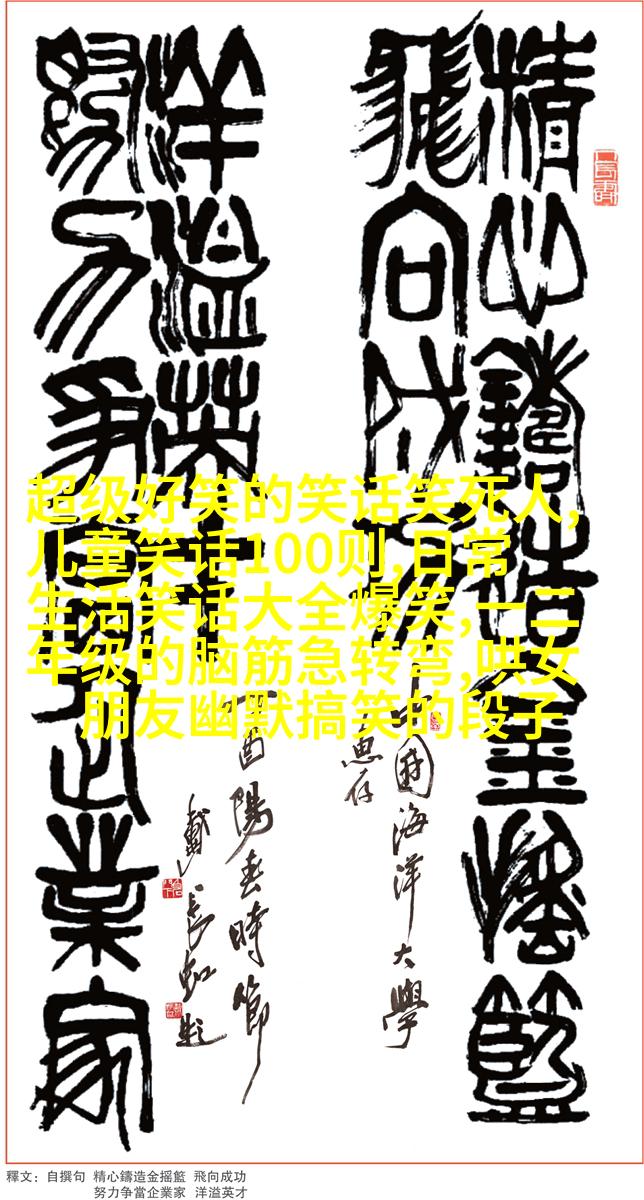 精心鑄造金搖籃
飛向成功
中國海洋大學
惠存
努力爭當企業家
洋溢英才
丁酉陽春時節
戴長虹題
超级好笑的笑话笑死人,
儿童笑话100则,日常
生活笑话大全爆笑,一二
年级的脑筋急转弯,哄女
朋友幽默搞笑的段子
釋文：自撰句 精心鑄造金摇籃 飛向成功
努力争當企業家 洋溢英才